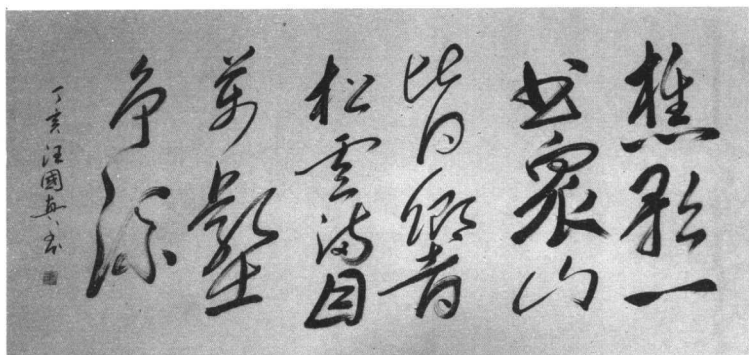 樵歌一
出衆山
皆響
松雲滿目
萬壑
争流
丁亥汪國真書